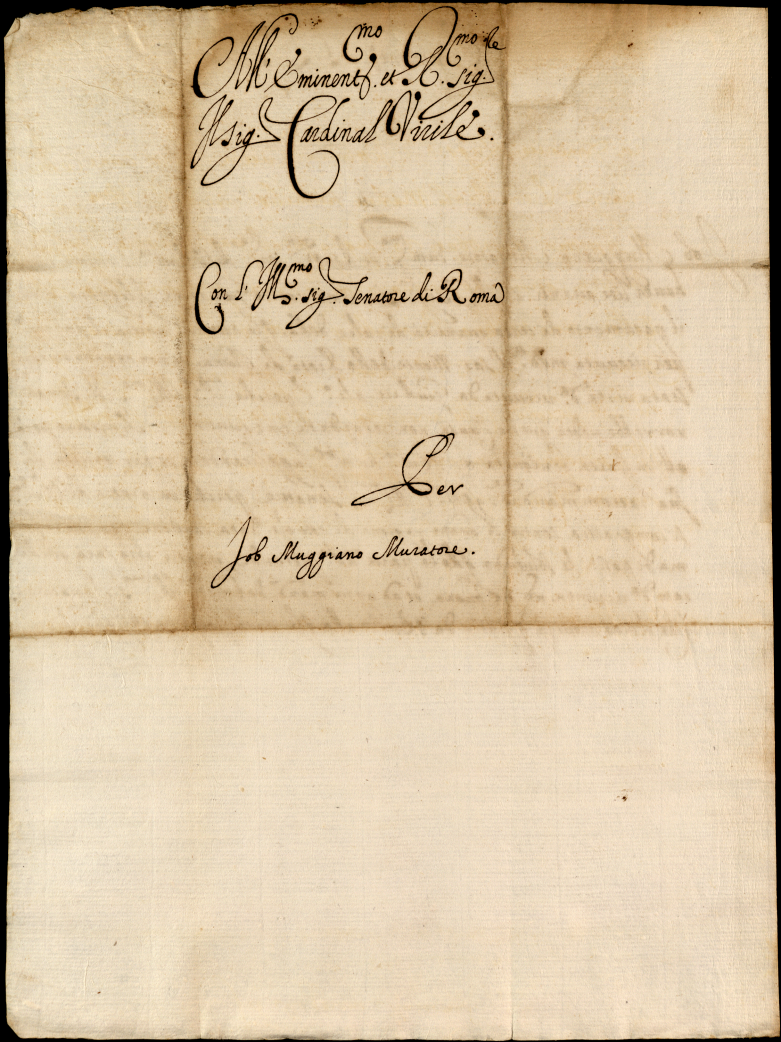 All' Eminent.mo et R.mo sig.re
Il sig. Cardinal Virile.
Con l' Ill.mo sig. Senatore di Roma
Per
Job Muggiano Muratore.